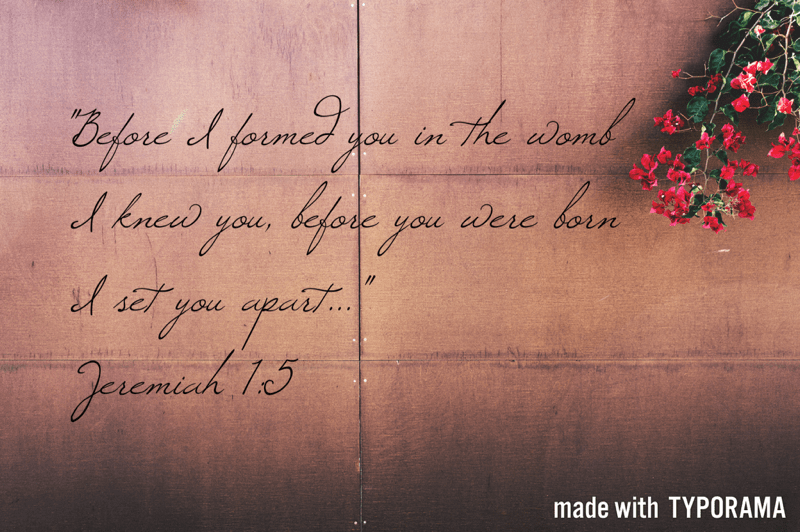 "Before I formed you in the womb
I knew you, before you were born
I set you apart..."
Jeremiah 1:5
made with TYPORAMA